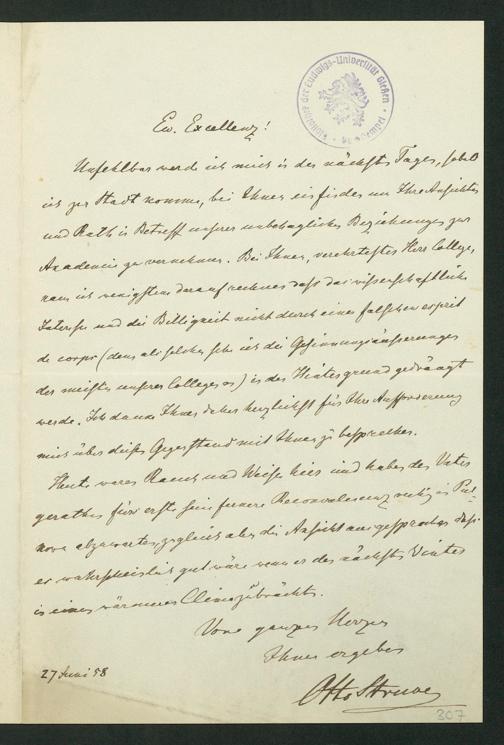 Bibliothek der Ludwigs-Universität Gießen
Ew. Excellenz!
Unfehlbar werde ich mich in den nächsten Tagen, sobald
ich zur Stadt komme, bei Ihnen einfinden um Ihre Ansichten
und Rath in Betreff unserer unbehaglichen Beziehungen zur
Academie zu vernehmen. Bei Ihnen, verehrtester Herr College,
kann ich wenigstens darauf rechnen daß das wissenschaftliche
Interesse und die Billigkeit nicht durch einen falschen esprit
de corps (denn als solchen sehe ich die Gesinnungsäusserungen
der meisten unserer Collegen an) in den Hintergrund gedrängt
werde. Ich danke Ihnen daher herzlichst für Ihre Aufforderung
mich über diesen Gegenstand mit Ihnen zu besprechen.
Heute waren Rauch und Weisse hier und haben dem Vater
gerathen fürs erste seine fernere Reconvalescenz ruhig in Pul-
kova abzuwarten, zugleich aber die Ansicht ausgesprochen daß
es wahrscheinlich gut wäre wenn er den nächsten Winter
in einem wärmeren Clima zubrächte.
Von ganzem Herzen
Ihnen ergeben
27 Juni 58
Otto Struve
307